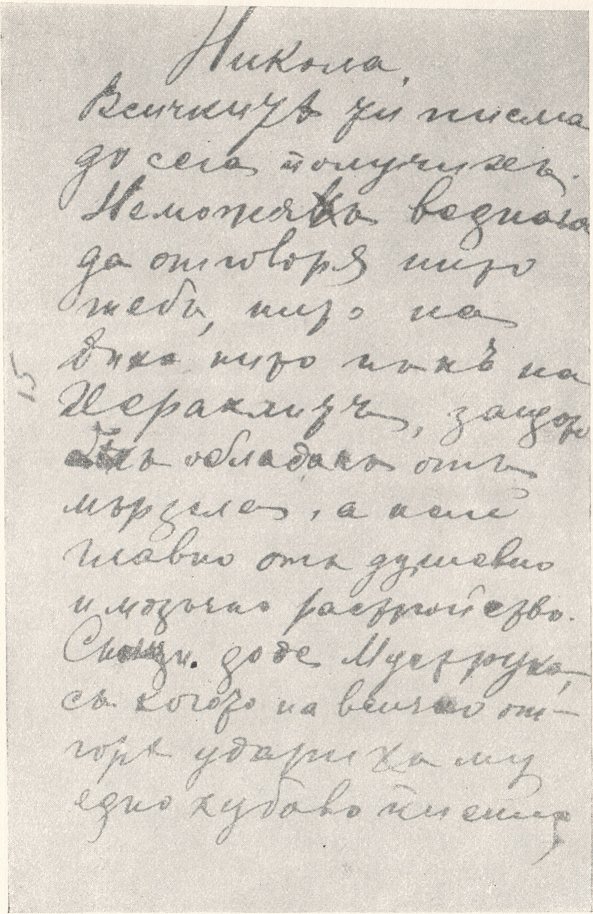 Никола,
Всичкитѣ ти писма
до сега получихъ.
Не можяхъ веднага
да отговоря нито
тебѣ, нито на
дика нито пъкъ на
Хераклитъ, защото
бѣхъ обладанъ отъ
мързела, а най
главно отъ душевно
и мозъчно растройство.
Снощи доде
съ когото на всичко от-
горѣ ударихаму
едно хубаво пиенье,
15